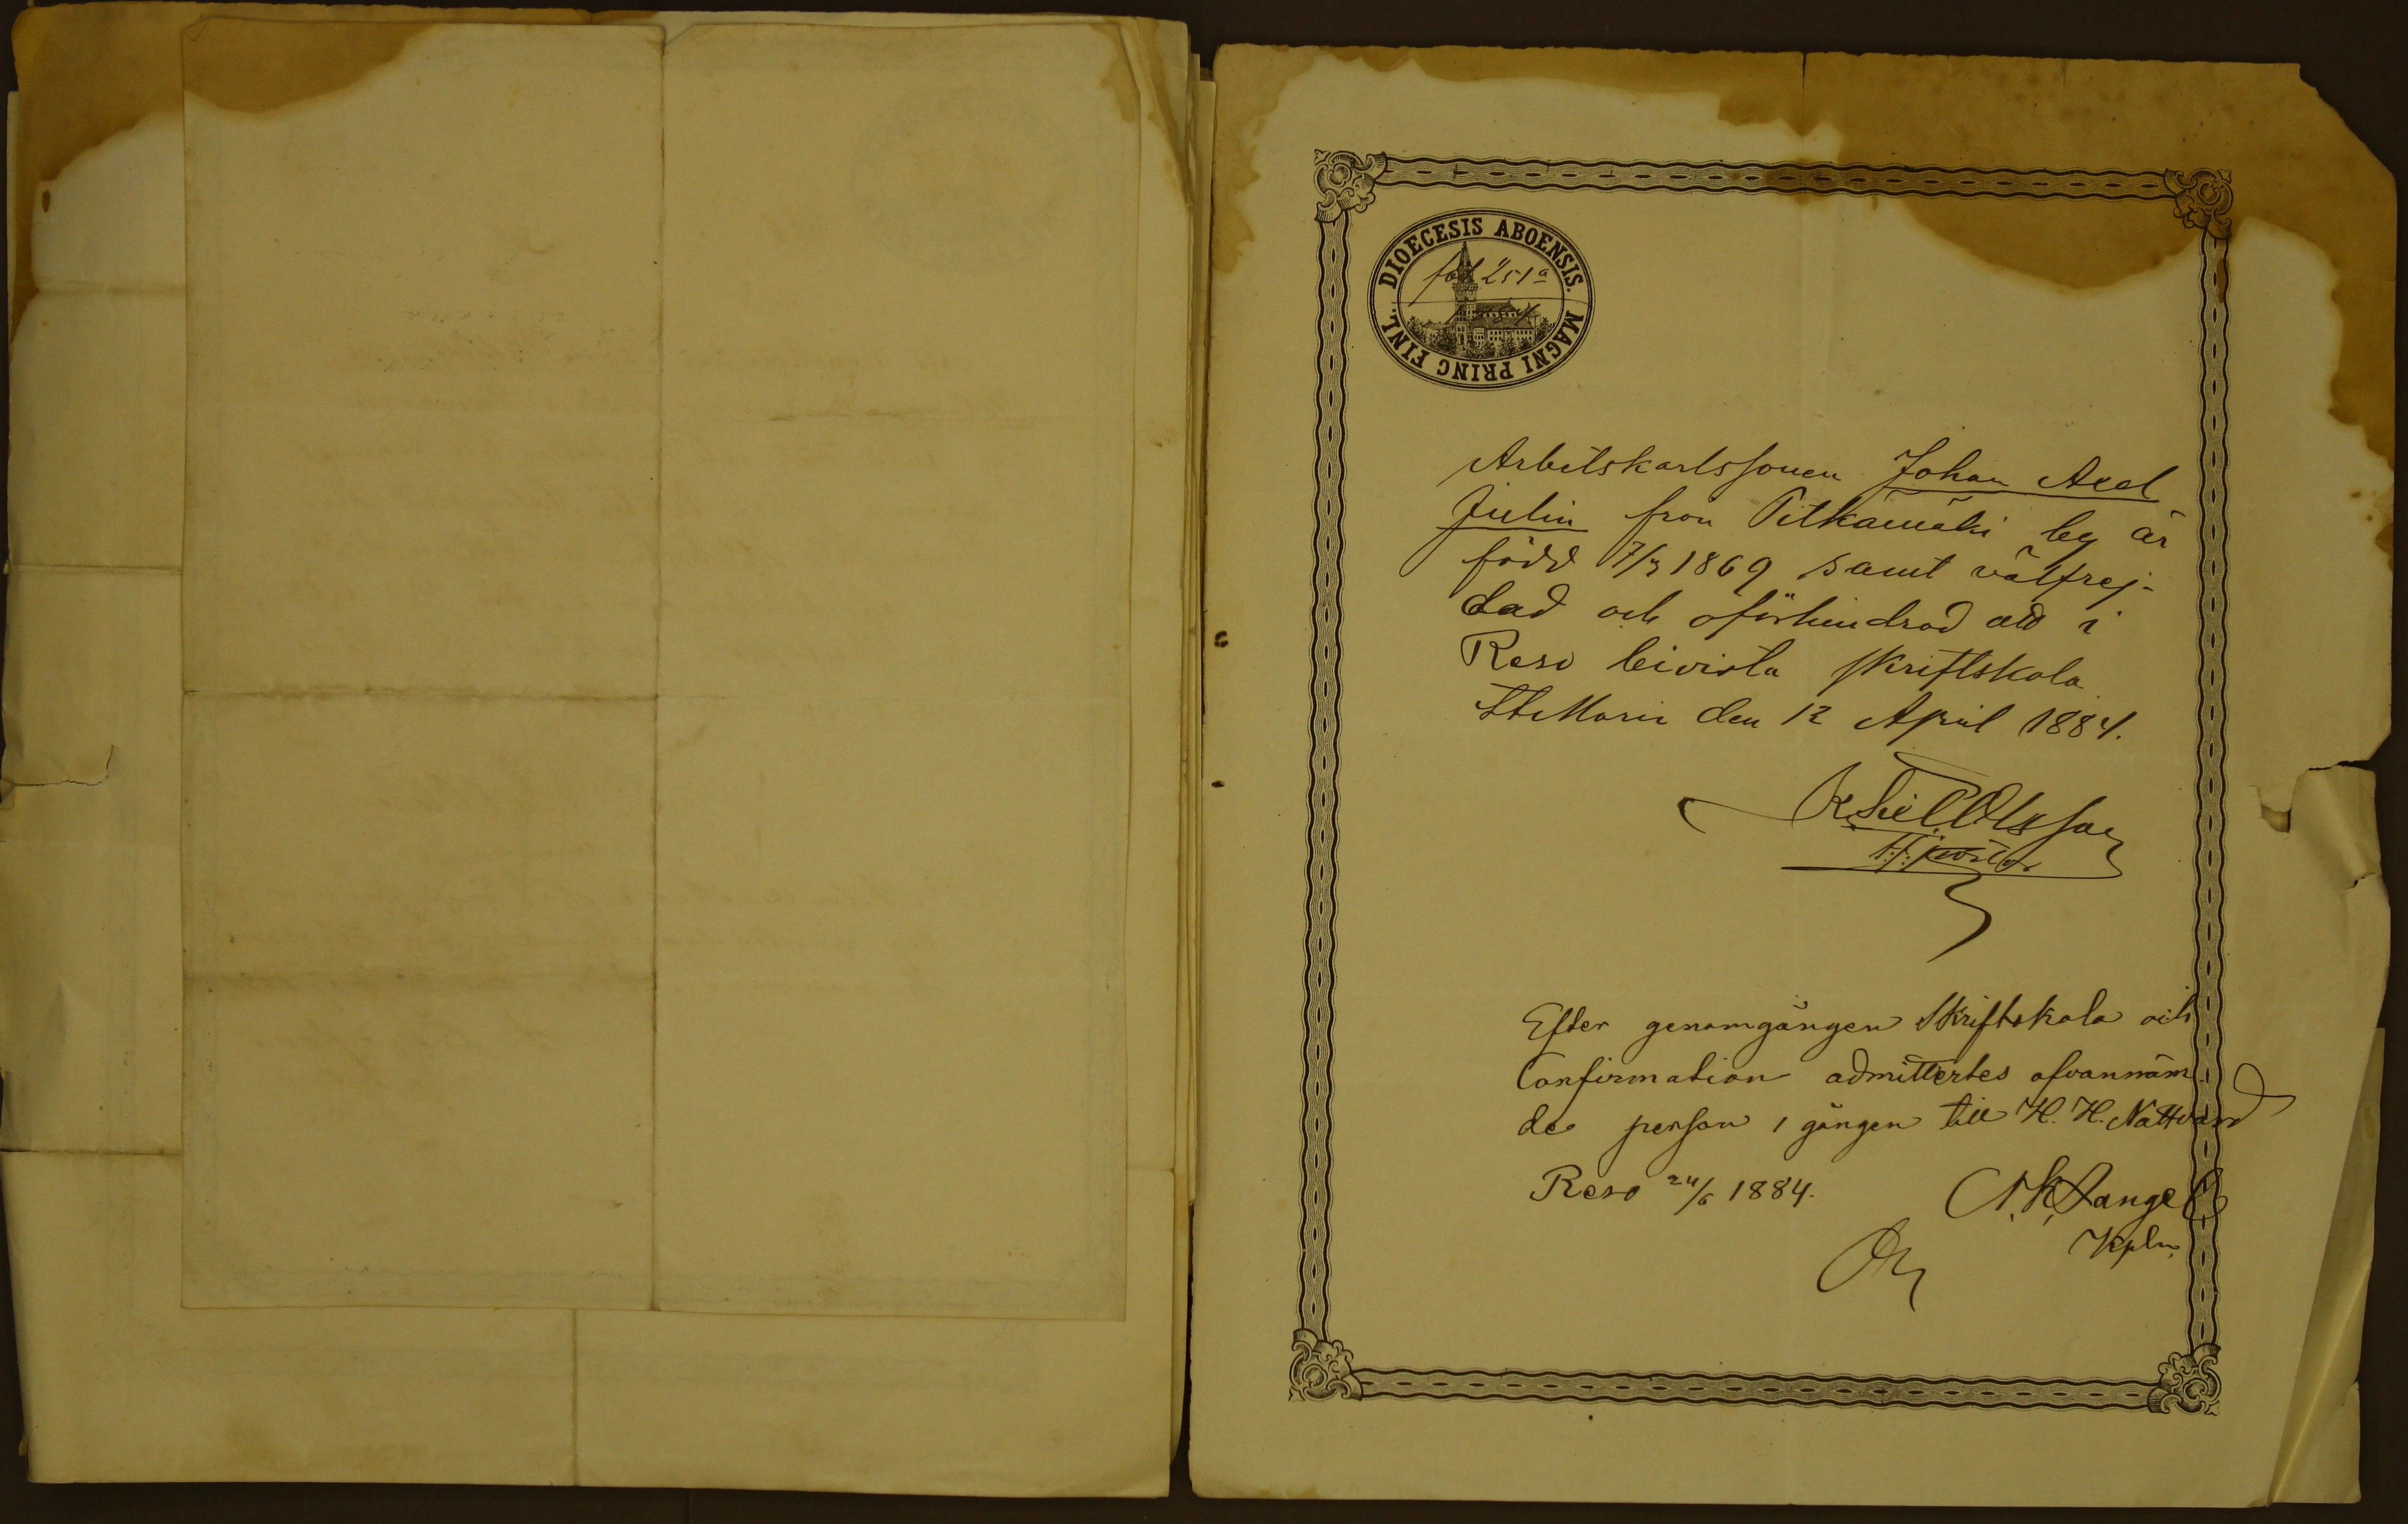 DIOECESIS ABOENSIS. MAGNI PRINC FINL.
fol 251a
Arbetskarlssonen Johan Axel
Julin från Pitkämäki by är
född 7/3 1869 samt välfrej-
dad och oförhindrad att i
Reso bivista skriftskola
St Marie den 12 April 1884.
Olsson
Efter genomgången Skriftskola och
Confirmation admittertes ofvannäm
de person 1 gången till H. H. Nattvard
Reso 24/6 1884.
Lange
Kpln.